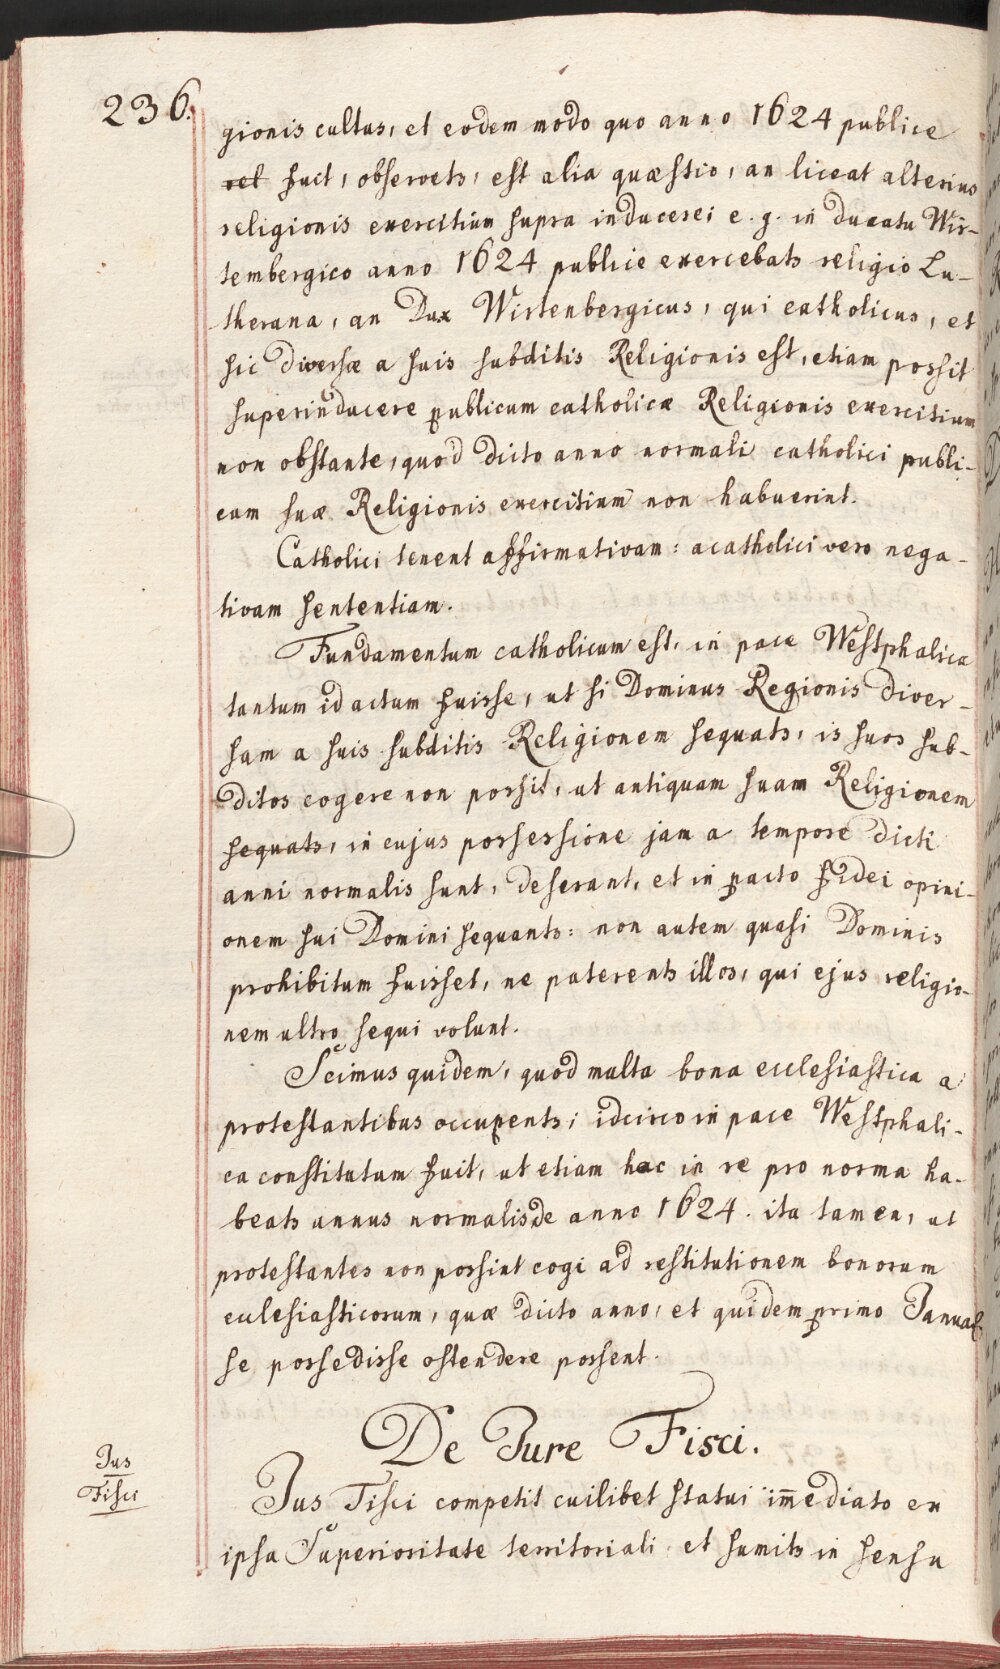 236.
gionis cultus, et eodem modo quo anno 1624 publice
vel fuit, observets, est alia quæstio, an liceat alterius
religionis exercitium supra inducerei e. g. in ducatu Wir-
tembergico anno 1624 publice exercebats religio Lu-
therana, an Dux Wirtenbergicus, qui catholicus, et
sic diversæ a suis subditis Religionis est, etiam possit
superinducere publicum catholicæ Religionis exercitium
non obstante, quod dicto anno normali catholici publi-
cum suæ Religionis exercitium non habuerint.
Catholici tenent affirmativam: acatholici vero nega-
tivam sententiam.
Fundamentum catholicum est, in pace Westphalica
tantum id actum fuisse, ut si Dominus Regionis diver-
sam a suis subditis Religionem sequats, is suos sub-
ditos cogere non possit, ut antiquam suam Religionem
sequats, in cujus possessione jam a tempore dicti
anni normalis sunt, deserant, et in pacto fidei opini-
onem sui Domini sequants: non autem quasi Dominis
prohibitum fuisset, ne paterents illos, qui ejus religio-
nem ultro sequi volunt.
Scimus quidem, quod multa bona ecclesiastica a
protestantibus occupents; idcirco in pace Westphali-
ca constitutum fuit, ut etiam hac in re pro norma ha-
beats annus normalis de anno 1624. ita tamen, ut
protestantes non possint cogi ad restitutionem bonorum
ecclesiasticorum, quæ dicto anno, et quidem primo Januar
se possedisse ostendere possent.
De Jure Fisci.
Jus
Fisci
Jus Fisci competit cuilibet statui im̅ediato ex
ipsa Superioritate territoriali. et sumits in sensu